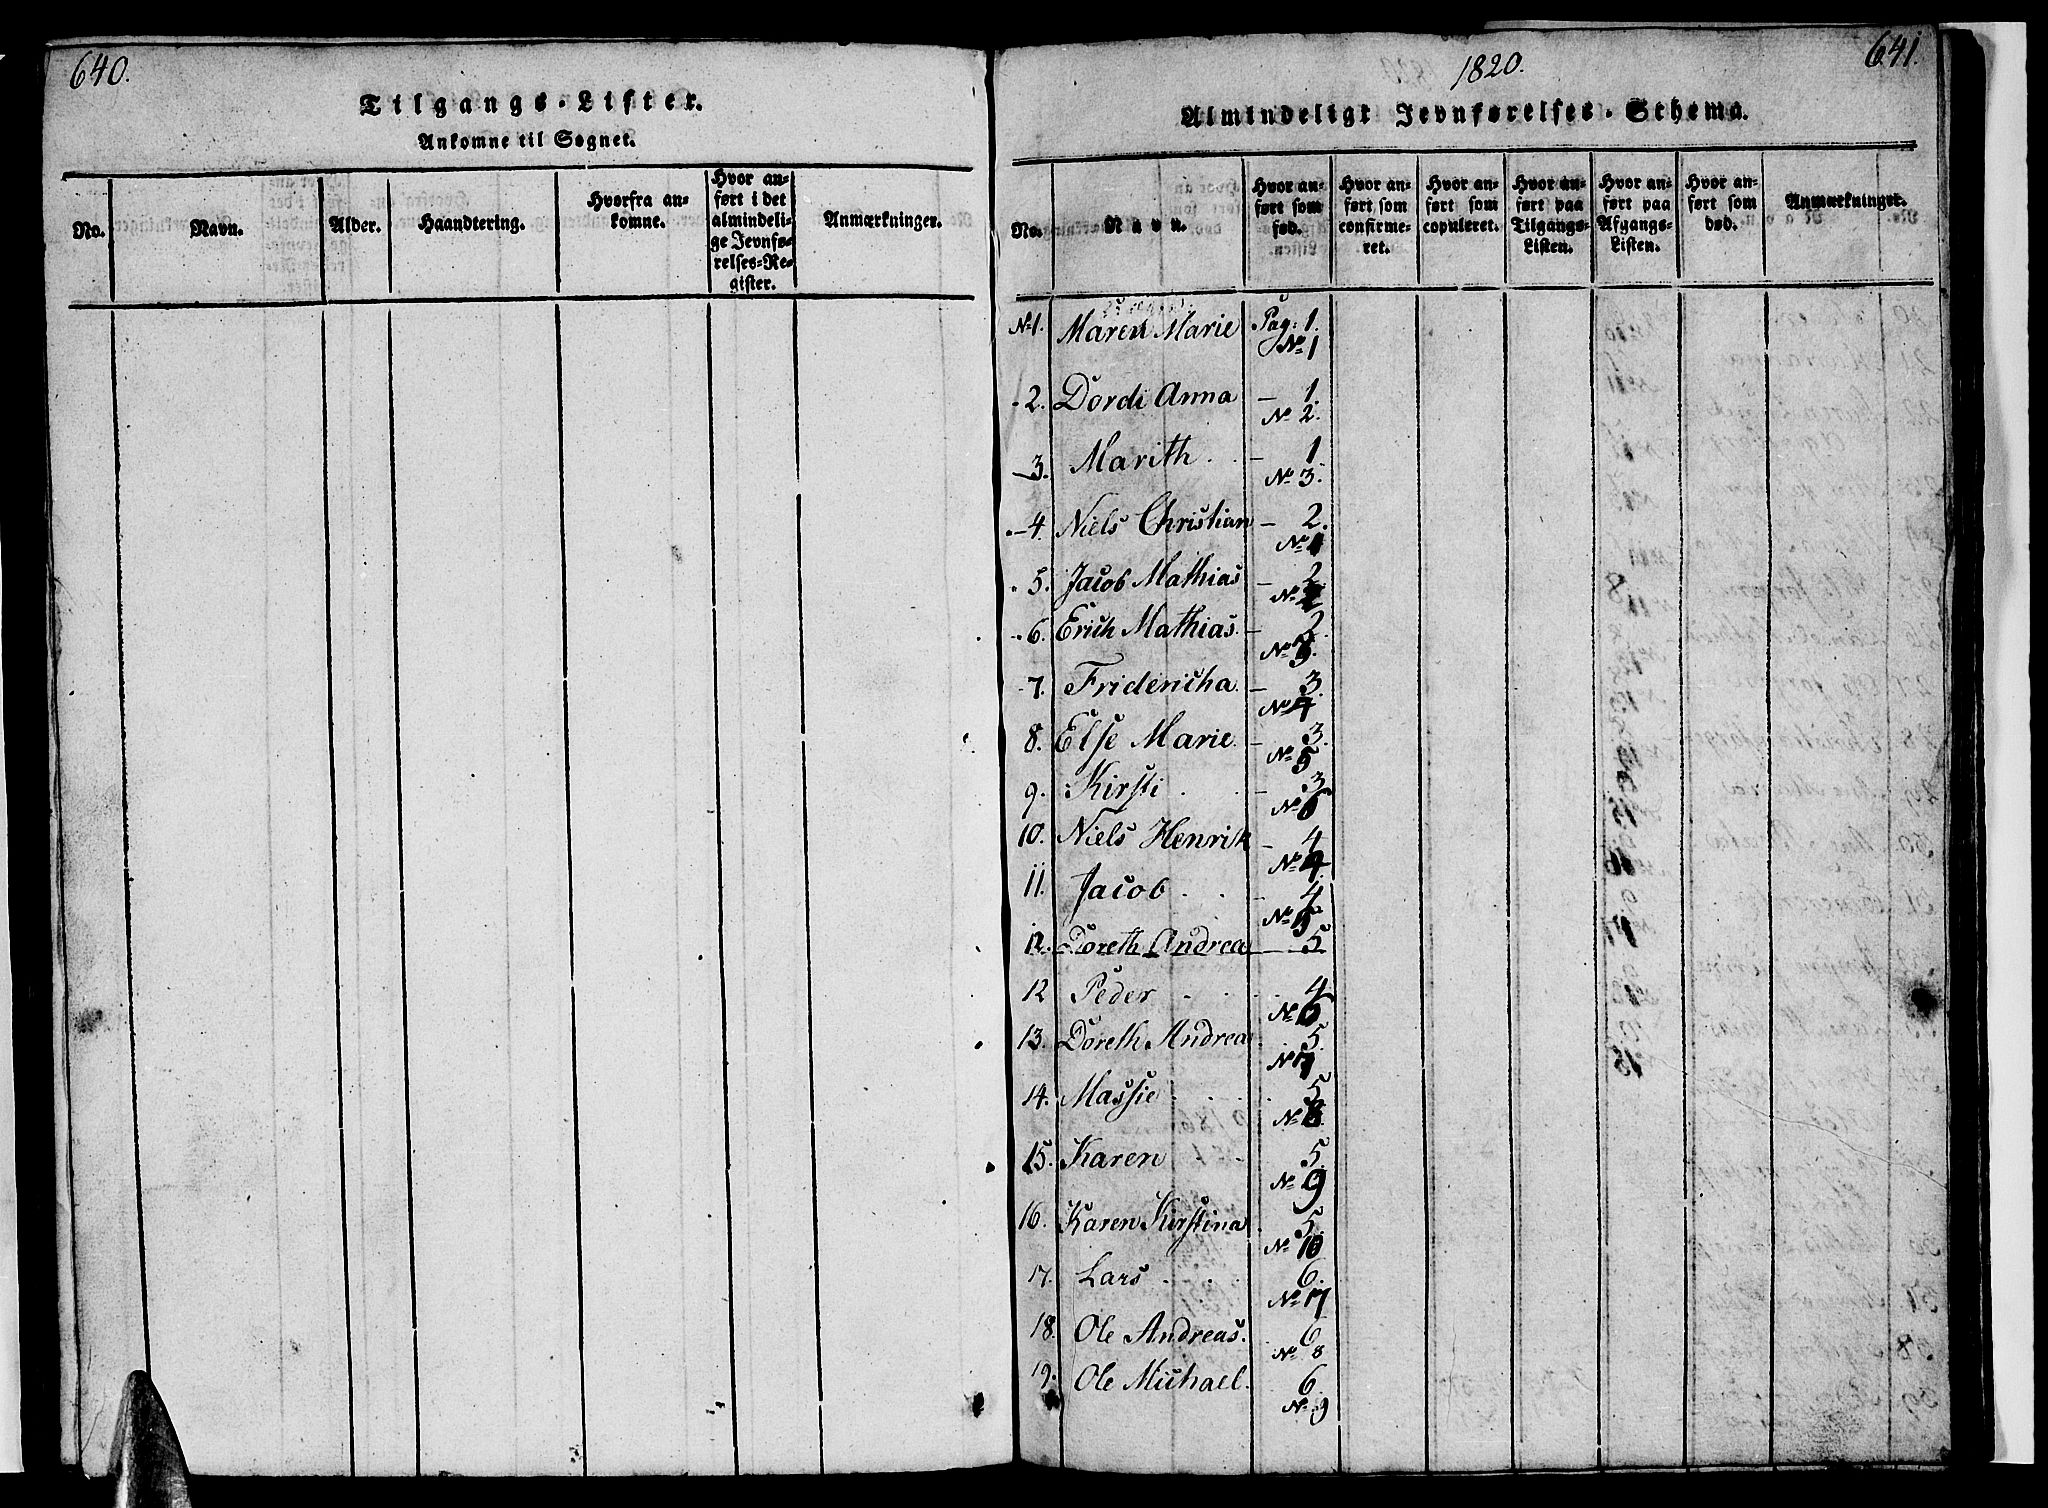 640.
Tilgangs-Lister.
Ankomne til Sognet.
No.
Navn.
Alder.
Haandtering.
Hvorfra an-
komne.
Hvor an-
ført i det
almindeli-
ge Jevnfø-
relses-Re-
gister.
Anmærkninger.
641.
1820.
Almindeligt Jevnførelses-Schema.
No.
Navn.
Hvor an-
ført som
fød.
Hvor an-
ført som
confirme-
ret.
Hvor an-
ført som
copuleret.
Hvor an-
ført paa
Tilgangs-
Listen.
Hvor an-
ført paa
Afgangs-
Listen.
Hvor an-
ført som
død.
Anmærkninger.
No 1. Maren Marie Pag: 1.
No 1
- 2. Dordi Anna — 1.
No 2.
- 3. Marith . . — 1
No 3.
- 4. Niels Christian — 2.
No 1
- 5. Jacob Mathias — 2.
No 2
- 6. Erich Mathias. — 2.
No 3.
- 7. Fridericha. — 3.
No 4
8. Else Marie. — 3.
No 5
9. Kirsti . . — 3
No 6
10. Niels Henrik — 4
No 4
11. Jacob . . — 4
No 5
12. Doreth Andrea — 5
12 Peder . . . 4
No 6
13. Doreth Andrea . 5.
No 7
14. Massie . . . . 5
No 8
15. Karen . 5.
No 9
16. Karen Kirstina . 5.
No 10
17. Lars . . . 6.
No 7
18. Ole Andreas. . 6
No 8
19. Ole Michael. 6
No 9